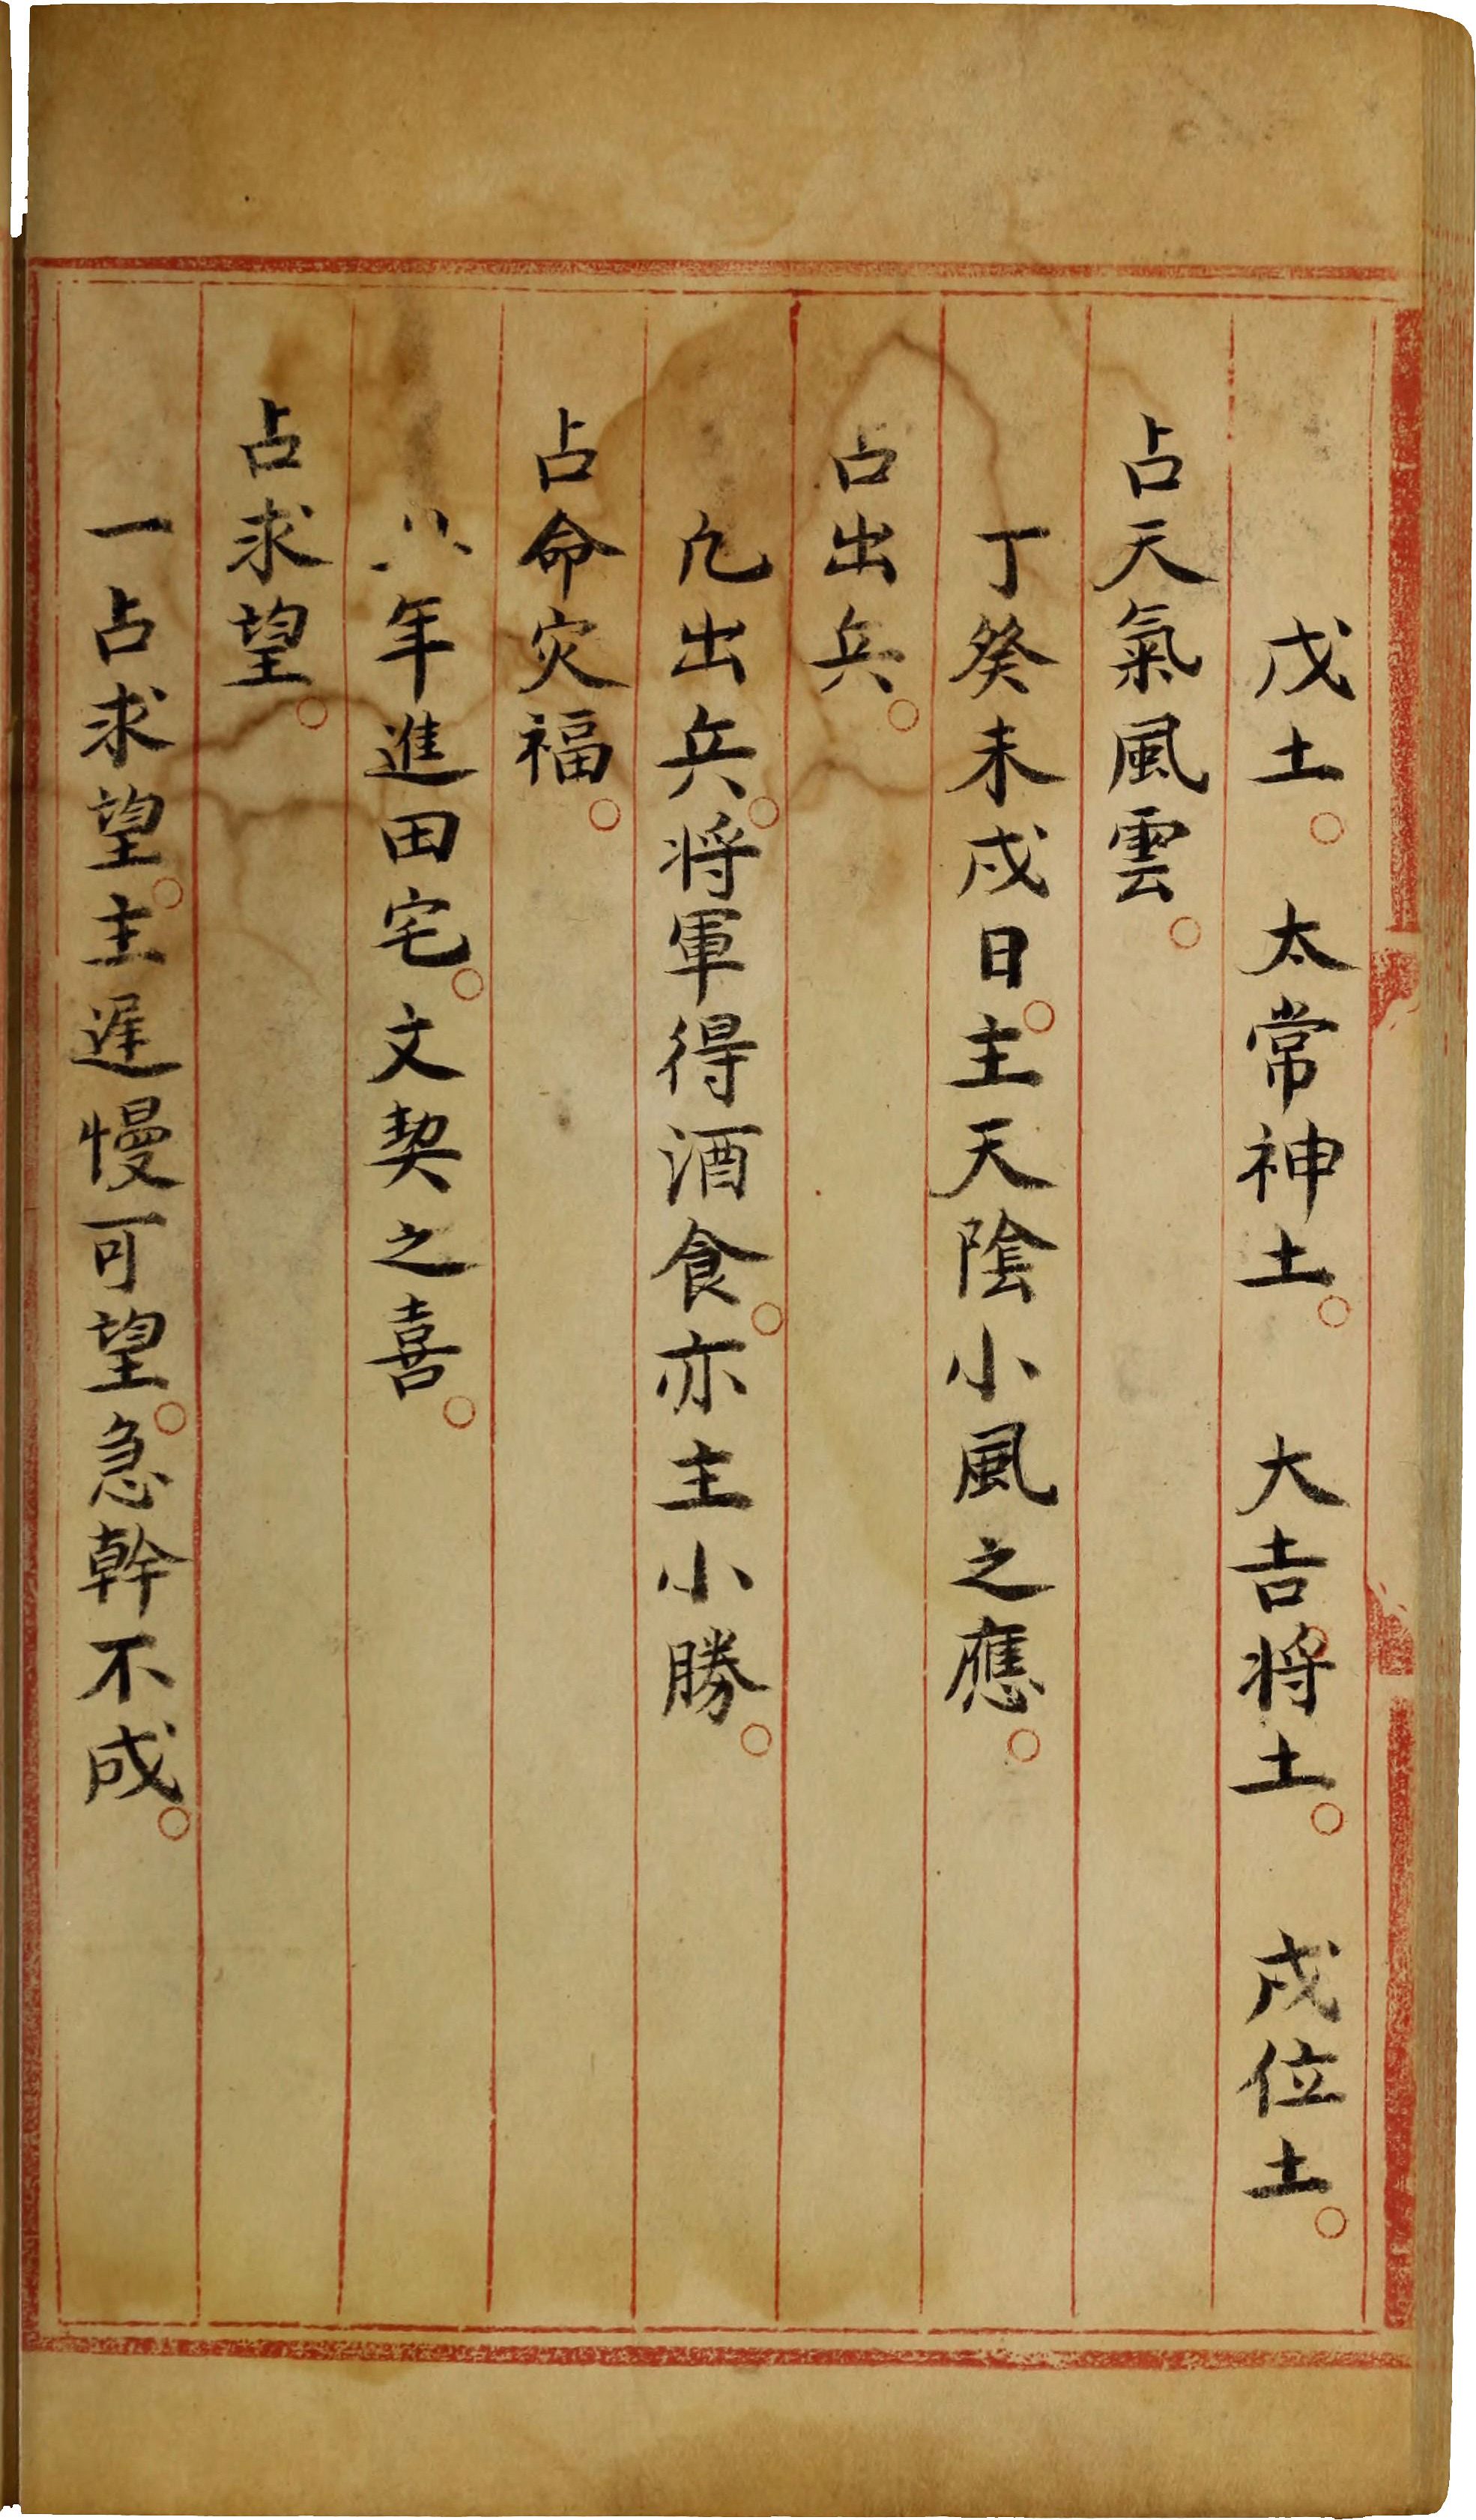 戊土。太常神土。大吉将土。戌位土。
占天氣風雲。
丁癸未戌日。主天陰小風之應。
占出兵。
凢出兵。将軍得酒食。亦主小勝。
占命灾福。
年進田宅。文契之喜。
占求望。
一占求望。主遅慢可望。急幹不成。